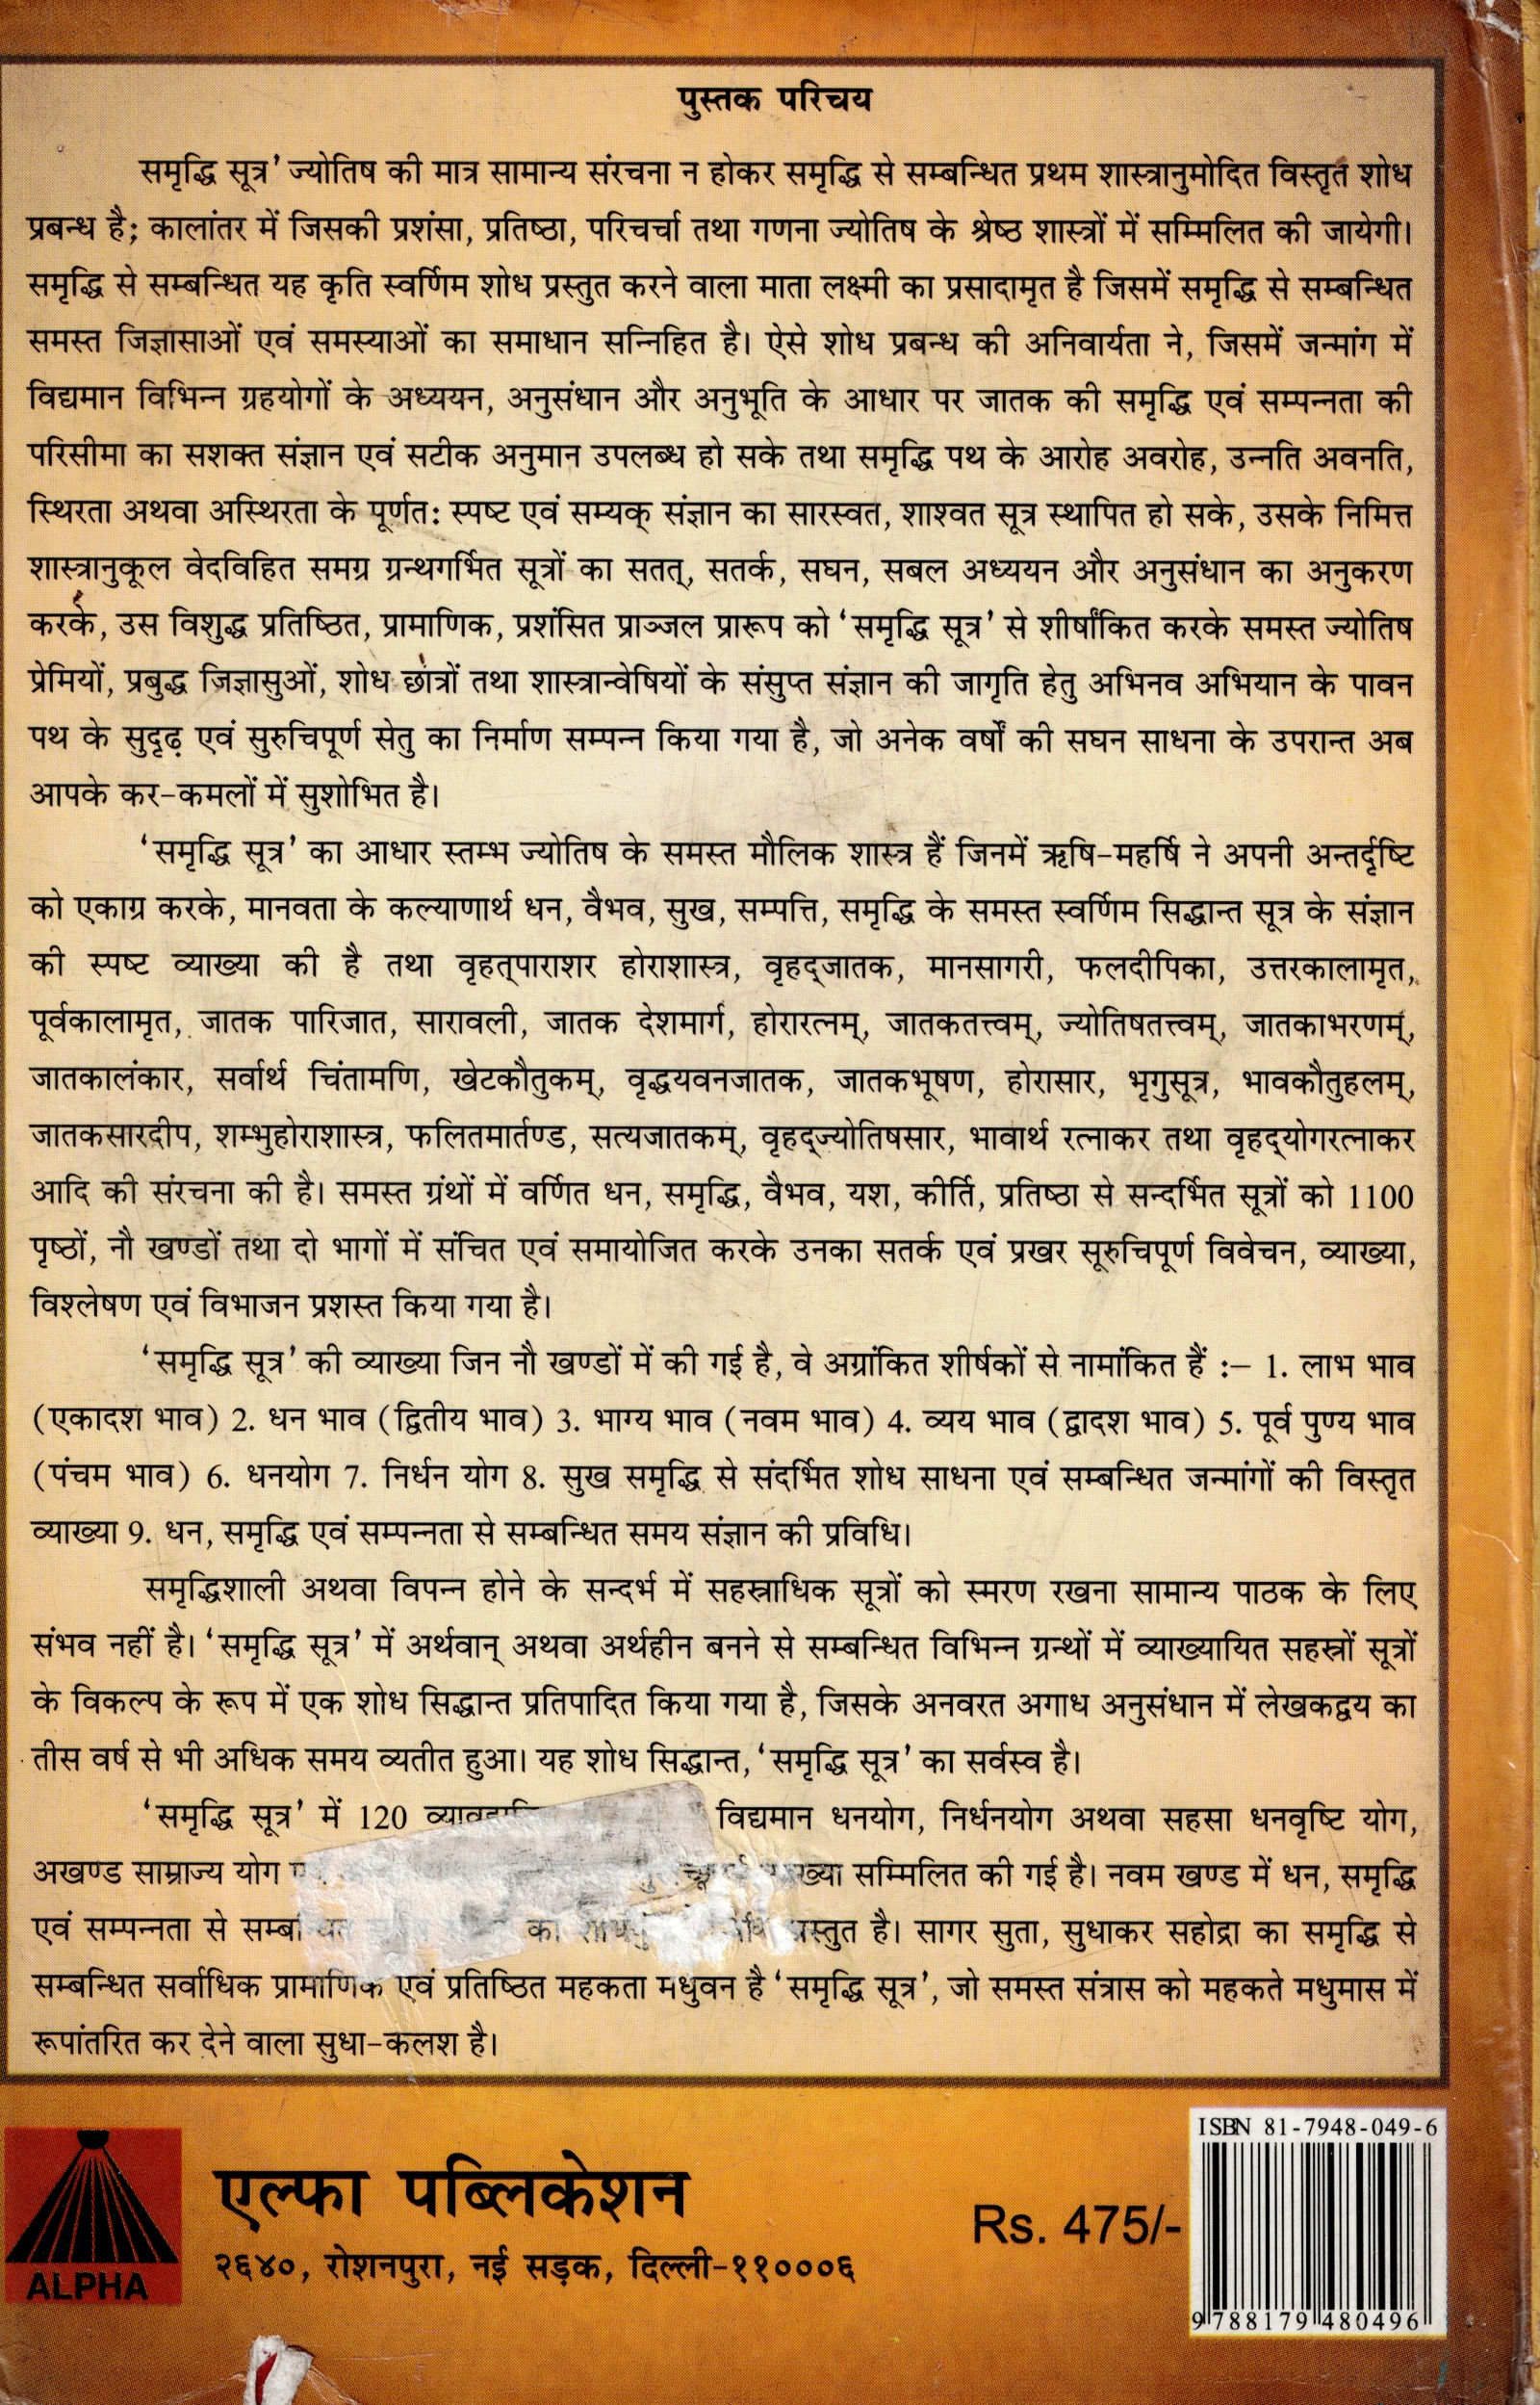 पुस्तक परिचय
समृद्धि सूत्र’ ज्योतिष की मात्र सामान्य संरचना न होकर समृद्धि से सम्बन्धित प्रथम शास्त्रानुमोदित विस्तृत शोध
प्रबन्ध है; कालांतर में जिसकी प्रशंसा, प्रतिष्ठा, परिचर्चा तथा गणना ज्योतिष के श्रेष्ठ शास्त्रों में सम्मिलित की जायेगी।
समृद्धि से सम्बन्धित यह कृति स्वर्णिम शोध प्रस्तुत करने वाला माता लक्ष्मी का प्रसादामृत है जिसमें समृद्धि से सम्बन्धित
समस्त जिज्ञासाओं एवं समस्याओं का समाधान सन्निहित है। ऐसे शोध प्रबन्ध की अनिवार्यता ने, जिसमें जन्मांग में
विद्यमान विभिन्न ग्रहयोगों के अध्ययन, अनुसंधान और अनुभूति के आधार पर जातक की समृद्धि एवं सम्पन्नता की
परिसीमा का सशक्त संज्ञान एवं सटीक अनुमान उपलब्ध हो सके तथा समृद्धि पथ के आरोह अवरोह, उन्नति अवनति,
स्थिरता अथवा अस्थिरता के पूर्णतः स्पष्ट एवं सम्यक् संज्ञान का सारस्वत, शाश्वत सूत्र स्थापित हो सके, उसके निमित्त
शास्त्रानुकूल वेदविहित समग्र ग्रन्थगर्भित सूत्रों का सतत्, सतर्क, सघन, सबल अध्ययन और अनुसंधान का अनुकरण
करके, उस विशुद्ध प्रतिष्ठित, प्रामाणिक, प्रशंसित प्राञ्जल प्रारूप को ‘समृद्धि सूत्र’ से शीर्षांकित करके समस्त ज्योतिष
प्रेमियों, प्रबुद्ध जिज्ञासुओं, शोध छात्रों तथा शास्त्रान्वेषियों के संसुप्त संज्ञान की जागृति हेतु अभिनव अभियान के पावन
पथ के सुदृढ़ एवं सुरुचिपूर्ण सेतु का निर्माण सम्पन्न किया गया है, जो अनेक वर्षों की सघन साधना के उपरान्त अब
आपके कर-कमलों में सुशोभित है।
‘समृद्धि सूत्र’ का आधार स्तम्भ ज्योतिष के समस्त मौलिक शास्त्र हैं जिनमें ऋषि-महर्षि ने अपनी अन्तर्दृष्टि
को एकाग्र करके, मानवता के कल्याणार्थ धन, वैभव, सुख, सम्पत्ति, समृद्धि के समस्त स्वर्णिम सिद्धान्त सूत्र के संज्ञान
की स्पष्ट व्याख्या की है तथा वृहत्पाराशर होराशास्त्र, वृहद्जातक, मानसागरी, फलदीपिका, उत्तरकालामृत,
पूर्वकालामृत, जातक पारिजात, सारावली, जातक देशमार्ग, होरारत्नम्, जातकतत्त्वम्, ज्योतिषतत्त्वम्, जातकाभरणम्,
जातकालंकार, सर्वार्थ चिंतामणि, खेटकौतुकम्, वृद्धयवनजातक, जातकभूषण, होरासार, भृगुसूत्र, भावकौतुहलम्,
जातकसारदीप, शम्भुहोराशास्त्र, फलितमार्तण्ड, सत्यजातकम्, वृहद्ज्योतिषसार, भावार्थ रत्नाकर तथा वृहद्योगरत्नाकर
आदि की संरचना की है। समस्त ग्रंथों में वर्णित धन, समृद्धि, वैभव, यश, कीर्ति, प्रतिष्ठा से सन्दर्भित सूत्रों को 1100
पृष्ठों, नौ खण्डों तथा दो भागों में संचित एवं समायोजित करके उनका सतर्क एवं प्रखर सूरुचिपूर्ण विवेचन, व्याख्या,
विश्लेषण एवं विभाजन प्रशस्त किया गया है।
‘समृद्धि सूत्र’ की व्याख्या जिन नौ खण्डों में की गई है, वे अग्रांकित शीर्षकों से नामांकित हैं :– 1. लाभ भाव
(एकादश भाव) 2. धन भाव (द्वितीय भाव) 3. भाग्य भाव (नवम भाव) 4. व्यय भाव (द्वादश भाव) 5. पूर्व पुण्य भाव
(पंचम भाव) 6. धनयोग 7. निर्धन योग 8. सुख समृद्धि से संदर्भित शोध साधना एवं सम्बन्धित जन्मांगों की विस्तृत
व्याख्या 9. धन, समृद्धि एवं सम्पन्नता से सम्बन्धित समय संज्ञान की प्रविधि।
समृद्धिशाली अथवा विपन्न होने के सन्दर्भ में सहस्राधिक सूत्रों को स्मरण रखना सामान्य पाठक के लिए
संभव नहीं है। ‘समृद्धि सूत्र’ में अर्थवान् अथवा अर्थहीन बनने से सम्बन्धित विभिन्न ग्रन्थों में व्याख्यायित सहस्रों सूत्रों
के विकल्प के रूप में एक शोध सिद्धान्त प्रतिपादित किया गया है, जिसके अनवरत अगाध अनुसंधान में लेखकद्वय का
तीस वर्ष से भी अधिक समय व्यतीत हुआ। यह शोध सिद्धान्त, ‘समृद्धि सूत्र’ का सर्वस्व है।
‘समृद्धि सूत्र’ में 120 विद्यमान धनयोग, निर्धनयोग अथवा सहसा धनवृष्टि योग,
अखण्ड साम्राज्य योग सम्मिलित की गई है। नवम खण्ड में धन, समृद्धि
एवं सम्पन्नता से का प्रस्तुत है। सागर सुता, सुधाकर सहोद्रा का समृद्धि से
सम्बन्धित सर्वाधिक प्रामाणिक एवं प्रतिष्ठित महकता मधुवन है ‘समृद्धि सूत्र’, जो समस्त संत्रास को महकते मधुमास में
रूपांतरित कर देने वाला सुधा-कलश है।
ALPHA
एल्फा पब्लिकेशन
२६४०, रोशनपुरा, नई सड़क, दिल्ली-११०००६
Rs. 475/-
ISBN 81-7948-049-6
9788179480496